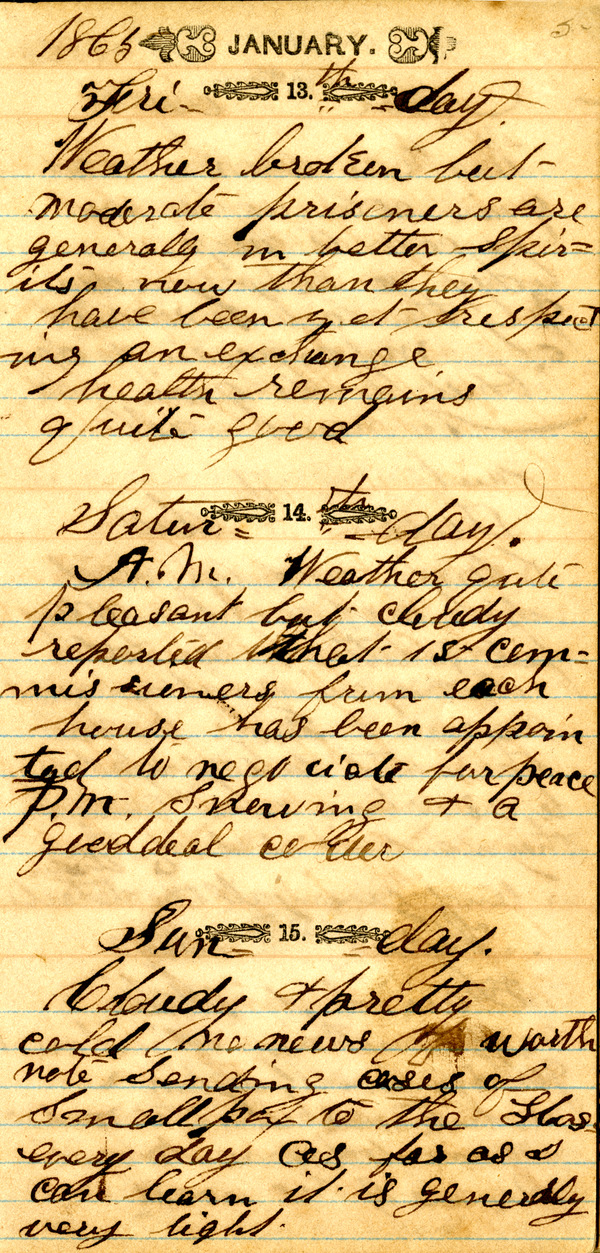 1865 JANUARY. 5-
Fri- 13.th day.
Weather broken but
moderate prisoners are
generaly in better Spir=
its now than they
have been yet respect
ing an exchange
health remains
quite good
Satur= 14.th day.
A.M. Weather quite
pleasant but cloudy
reported that 15 com=
missioners from each
house has been appoin
ted to negociate for peace
P.M. Snowing & a
good deal colder
Sun- 15. day.
Cloudy & pretty
cold no news worth
note Sending cases of
Small pox to the Hos-
every day as far as I
can learn it is generaly
very light.